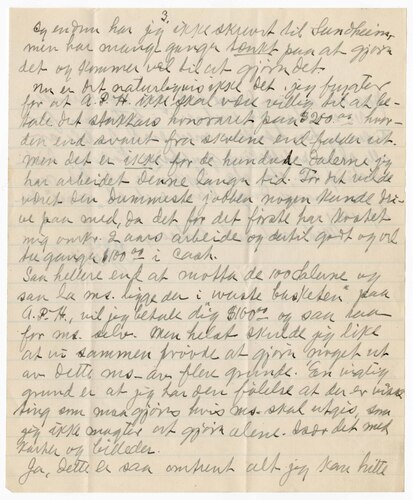 3.
og endnu har jeg ikke skrevet til Sundheim,
men har mange gange tænkt paa at gjøre
det og kommer vel til at gjøre det.
Nu er det naturligvis ikke det, jeg frygter
for at A.P.H. ikke skal være villig til at be-
tale det stakkars honoraret paa $200.00 hvor-
den end svaret fra skolene end falder ut.
Men det er ikke for de hundrede dalerne jeg
har arbeidet denne lange tid. For det vilde
været den dummeste jobben nogen kunde dri-
ve paa med, da det for det første har kostet
mig omkr. 2 aars arbeide og dertil godt og vel
tre gange $100.00 i cash.
Saa hellere end at motta de 100 dalerne og
saa la ms. ligge der i "waste basketen" paa
A.P.H., vil jeg betale dig $100.00 og saa haa
for ms. selv. Men helst skulde jeg like
at vi sammen prøvde at gjøre noget ut
av dette ms. av flere grunde. En vigtig
grund er at jeg har den følelse at der er
ting som maa gjøres hvis ms. skal utgis, som
jeg ikke magter at gjøre alene. Især det med
karter og billeder.
Ja, dette er saa omtrent alt jeg kan